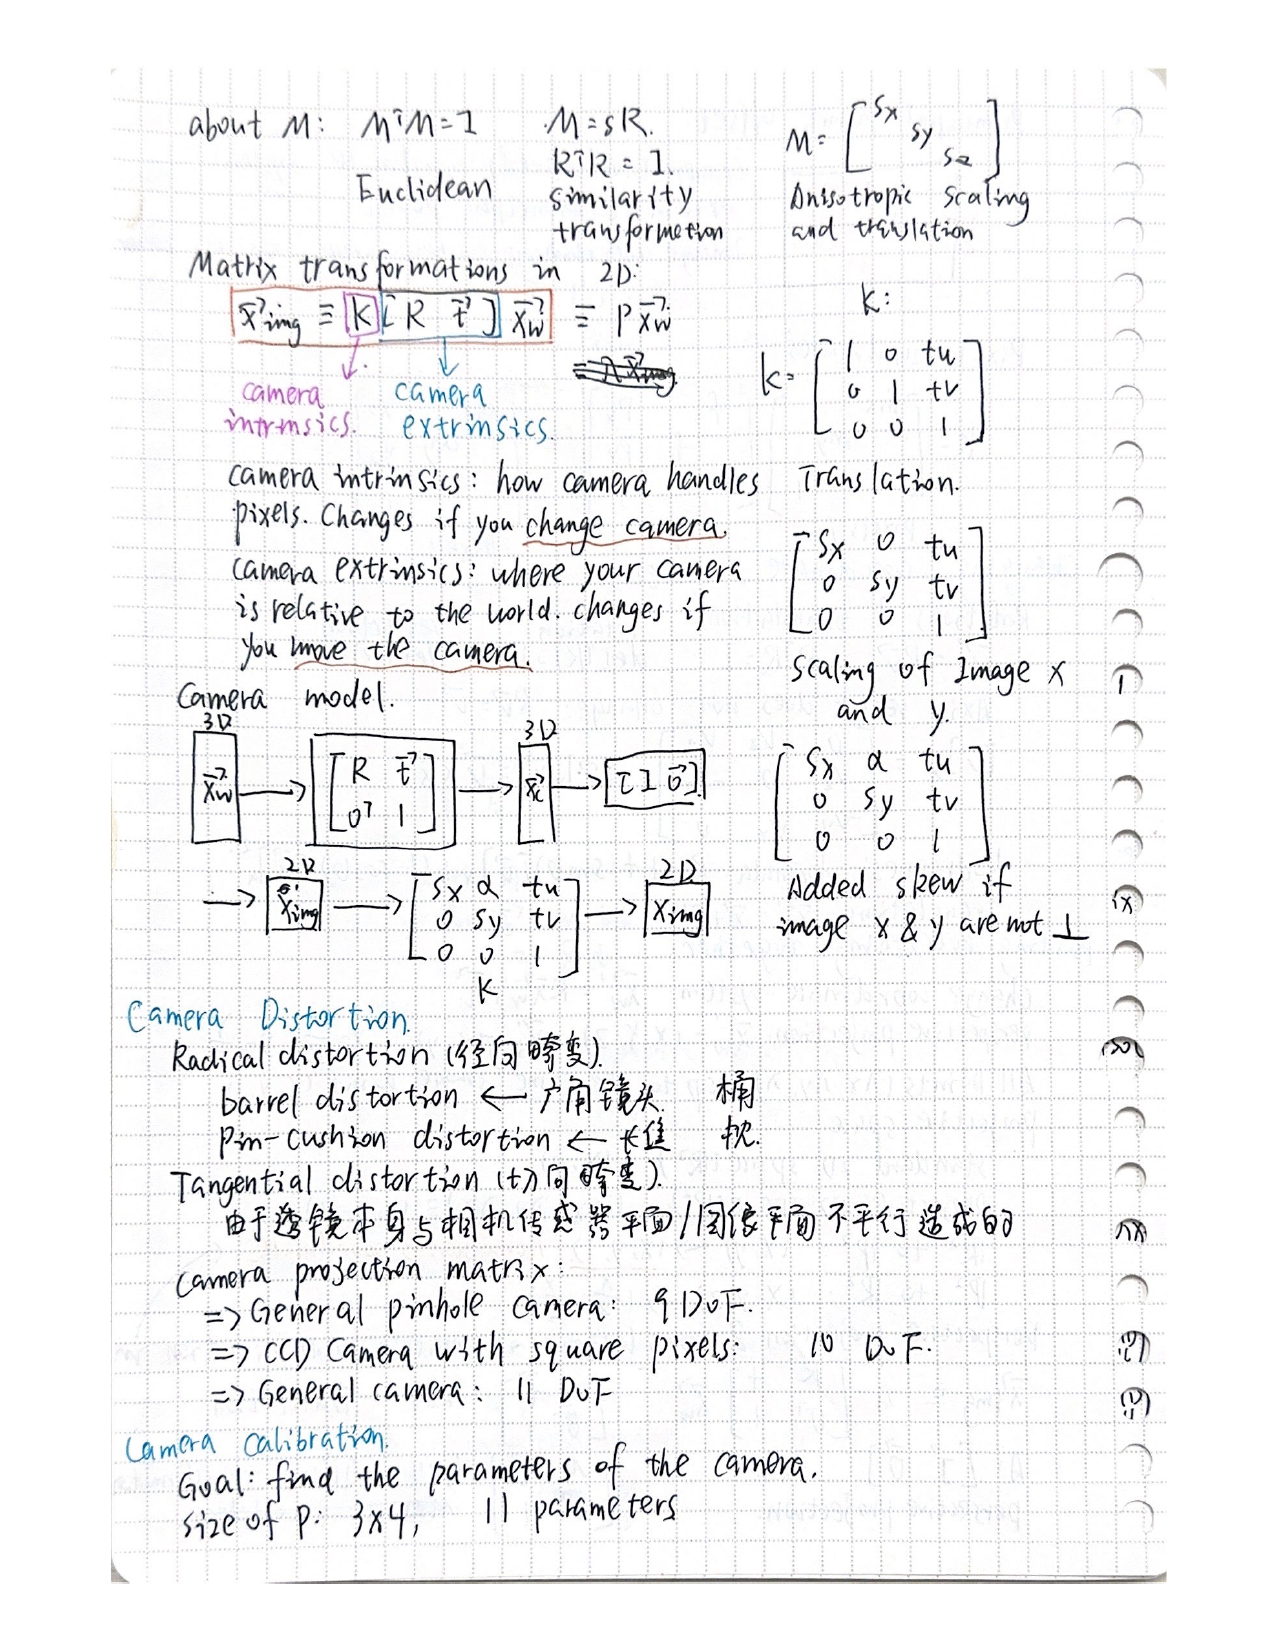 about M: MᵀM=I M=sR. M= [Sx
Sy
Sz]
RᵀR = I.
Euclidean similarity Anisotropic scaling
transformetion and translation
Matrix transformations in 2D:
x⃗img ≡ K[R t⃗] x⃗w ≡ P x⃗w
camera camera
intrinsics. extrinsics.
K:
K= [1 0 tu
0 1 tv
0 0 1]
Translation.
camera intrinsics: how camera handles
pixels. Changes if you change camera.
camera extrinsics: where your camera
is relative to the world. changes if
you move the camera.
[Sx 0 tu
0 Sy tv
0 0 1]
Scaling of Image x
and y.
Camera model.
3D 3D
x⃗w → [R t⃗
0ᵀ 1] → x⃗c → [I 0⃗]
2D 2D
→ x⃗img → [Sx α tu
0 Sy tv
0 0 1] → Ximg
K
[Sx α tu
0 Sy tv
0 0 1]
Added skew if
image x & y are not ⊥
Camera Distortion.
Radical distortion (径向畸变).
barrel distortion ← 广角镜头 桶
Pin-cushion distortion ← 长焦 枕.
Tangential distortion (切向畸变).
由于透镜本身与相机传感器平面/图像平面不平行造成的
Camera projection matrix:
=> General pinhole camera: 9 DoF.
=> CCD Camera with square pixels: 10 DoF.
=> General camera: 11 DoF
Camera Calibration.
Goal: find the parameters of the camera.
size of P: 3x4, 11 parameters